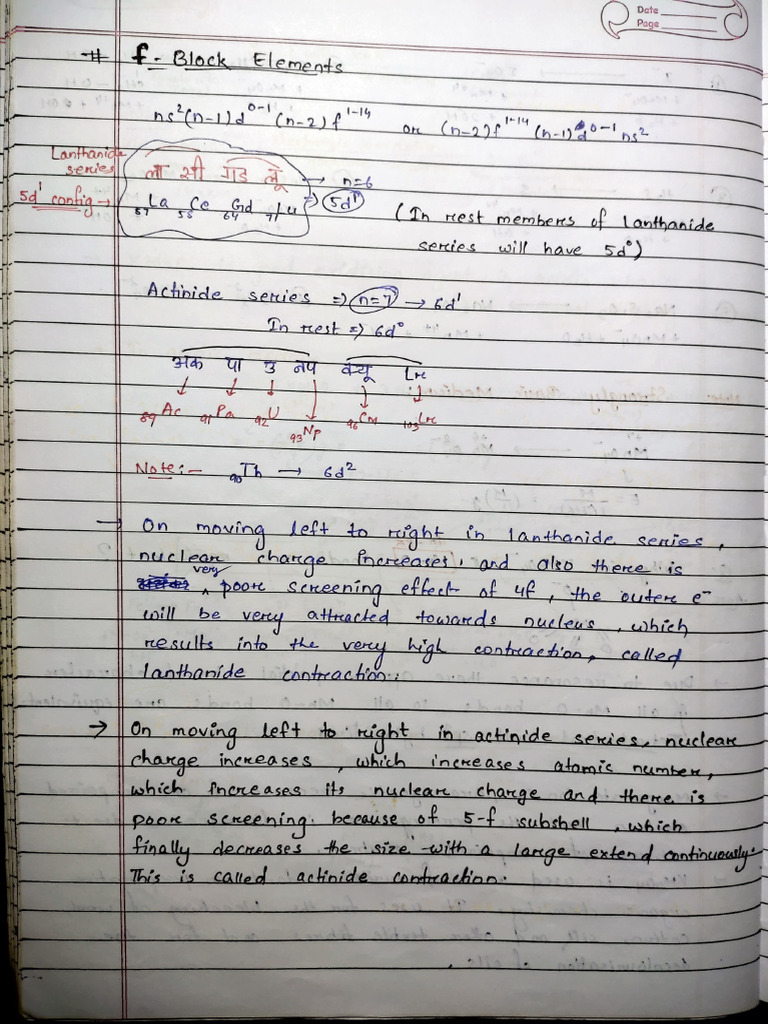 Date
Page
# f - Block Elements
ns²(n-1)d⁰⁻¹ (n-2)f¹⁻¹⁴ or (n-2)f¹⁻¹⁴ (n-1)d⁰⁻¹ ns²
Lanthanide series ला सी गाड लूं → n=6
5d¹ config → ₅₇La ₅₈Ce ₆₄Gd ₇₁Lu ⇒ 5d¹
(In rest members of lanthanide
series will have 5d⁰)
Actinide series ⇒ n=7 → 6d¹
In rest ⇒ 6d⁰
अक पा उ नप क्यू Lr
₈₉Ac ₉₁Pa ₉₂U ₉₃Np ₉₆Cm ₁₀₃Lr
Note:- ₉₀Th → 6d²
→ On moving left to right in lanthanide series,
nuclear charge increases, and also there is
very poor screening effect of 4f, the outer e⁻
will be very attracted towards nucleus, which
results into the very high contraction, called
lanthanide contraction.
→ On moving left to right in actinide series, nuclear
charge increases, which increases atomic number,
which increases its nuclear charge and there is
poor screening because of 5-f subshell, which
finally decreases the size with a large extend continuously.
This is called actinide contraction.